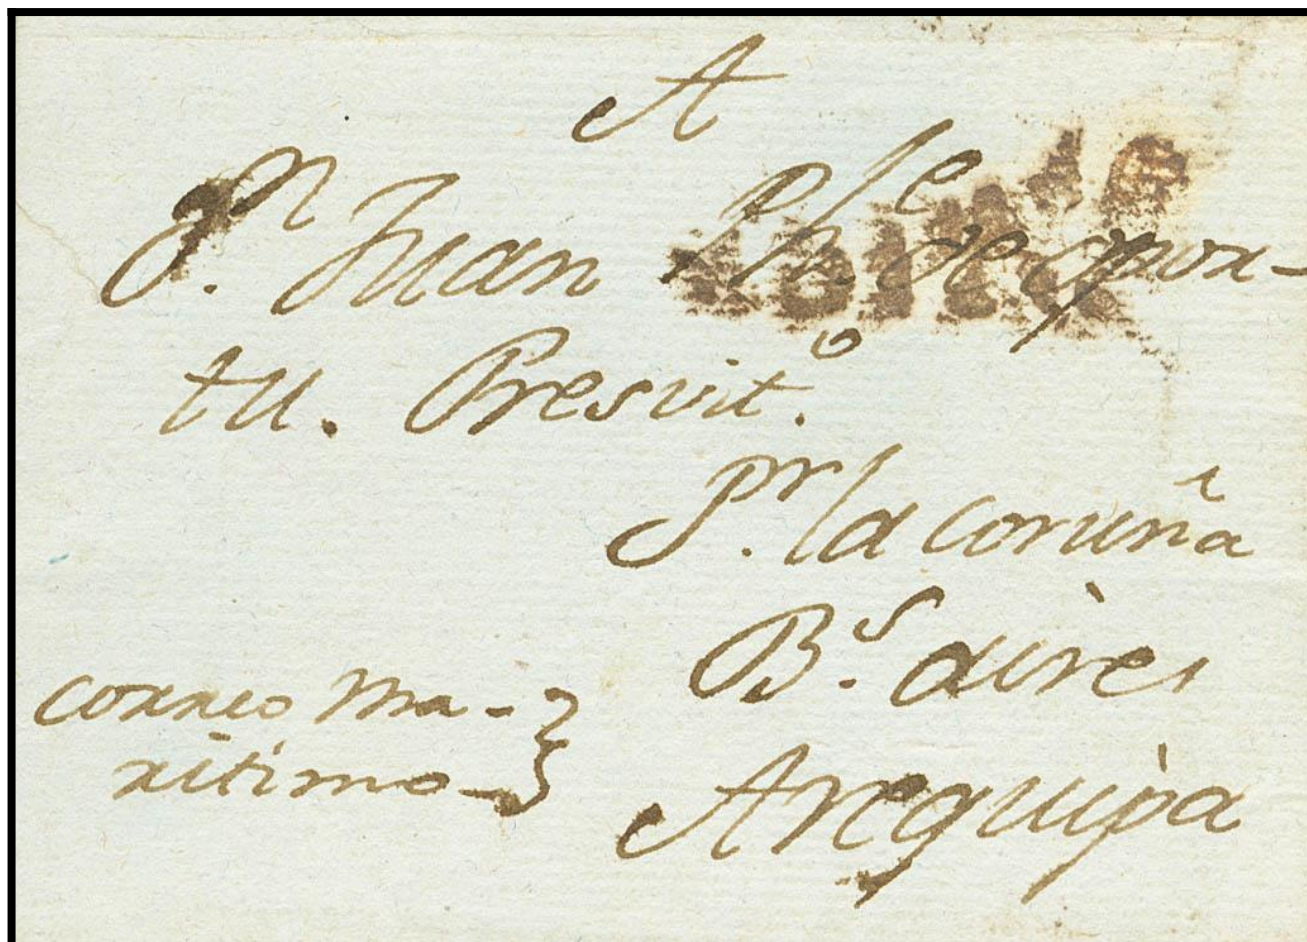 A
Dn. Juan Phe. de Apor-
tu. Presvito.
Pr. la coruña
Bs. aires
Arequipa
correo Ma-
ritimo